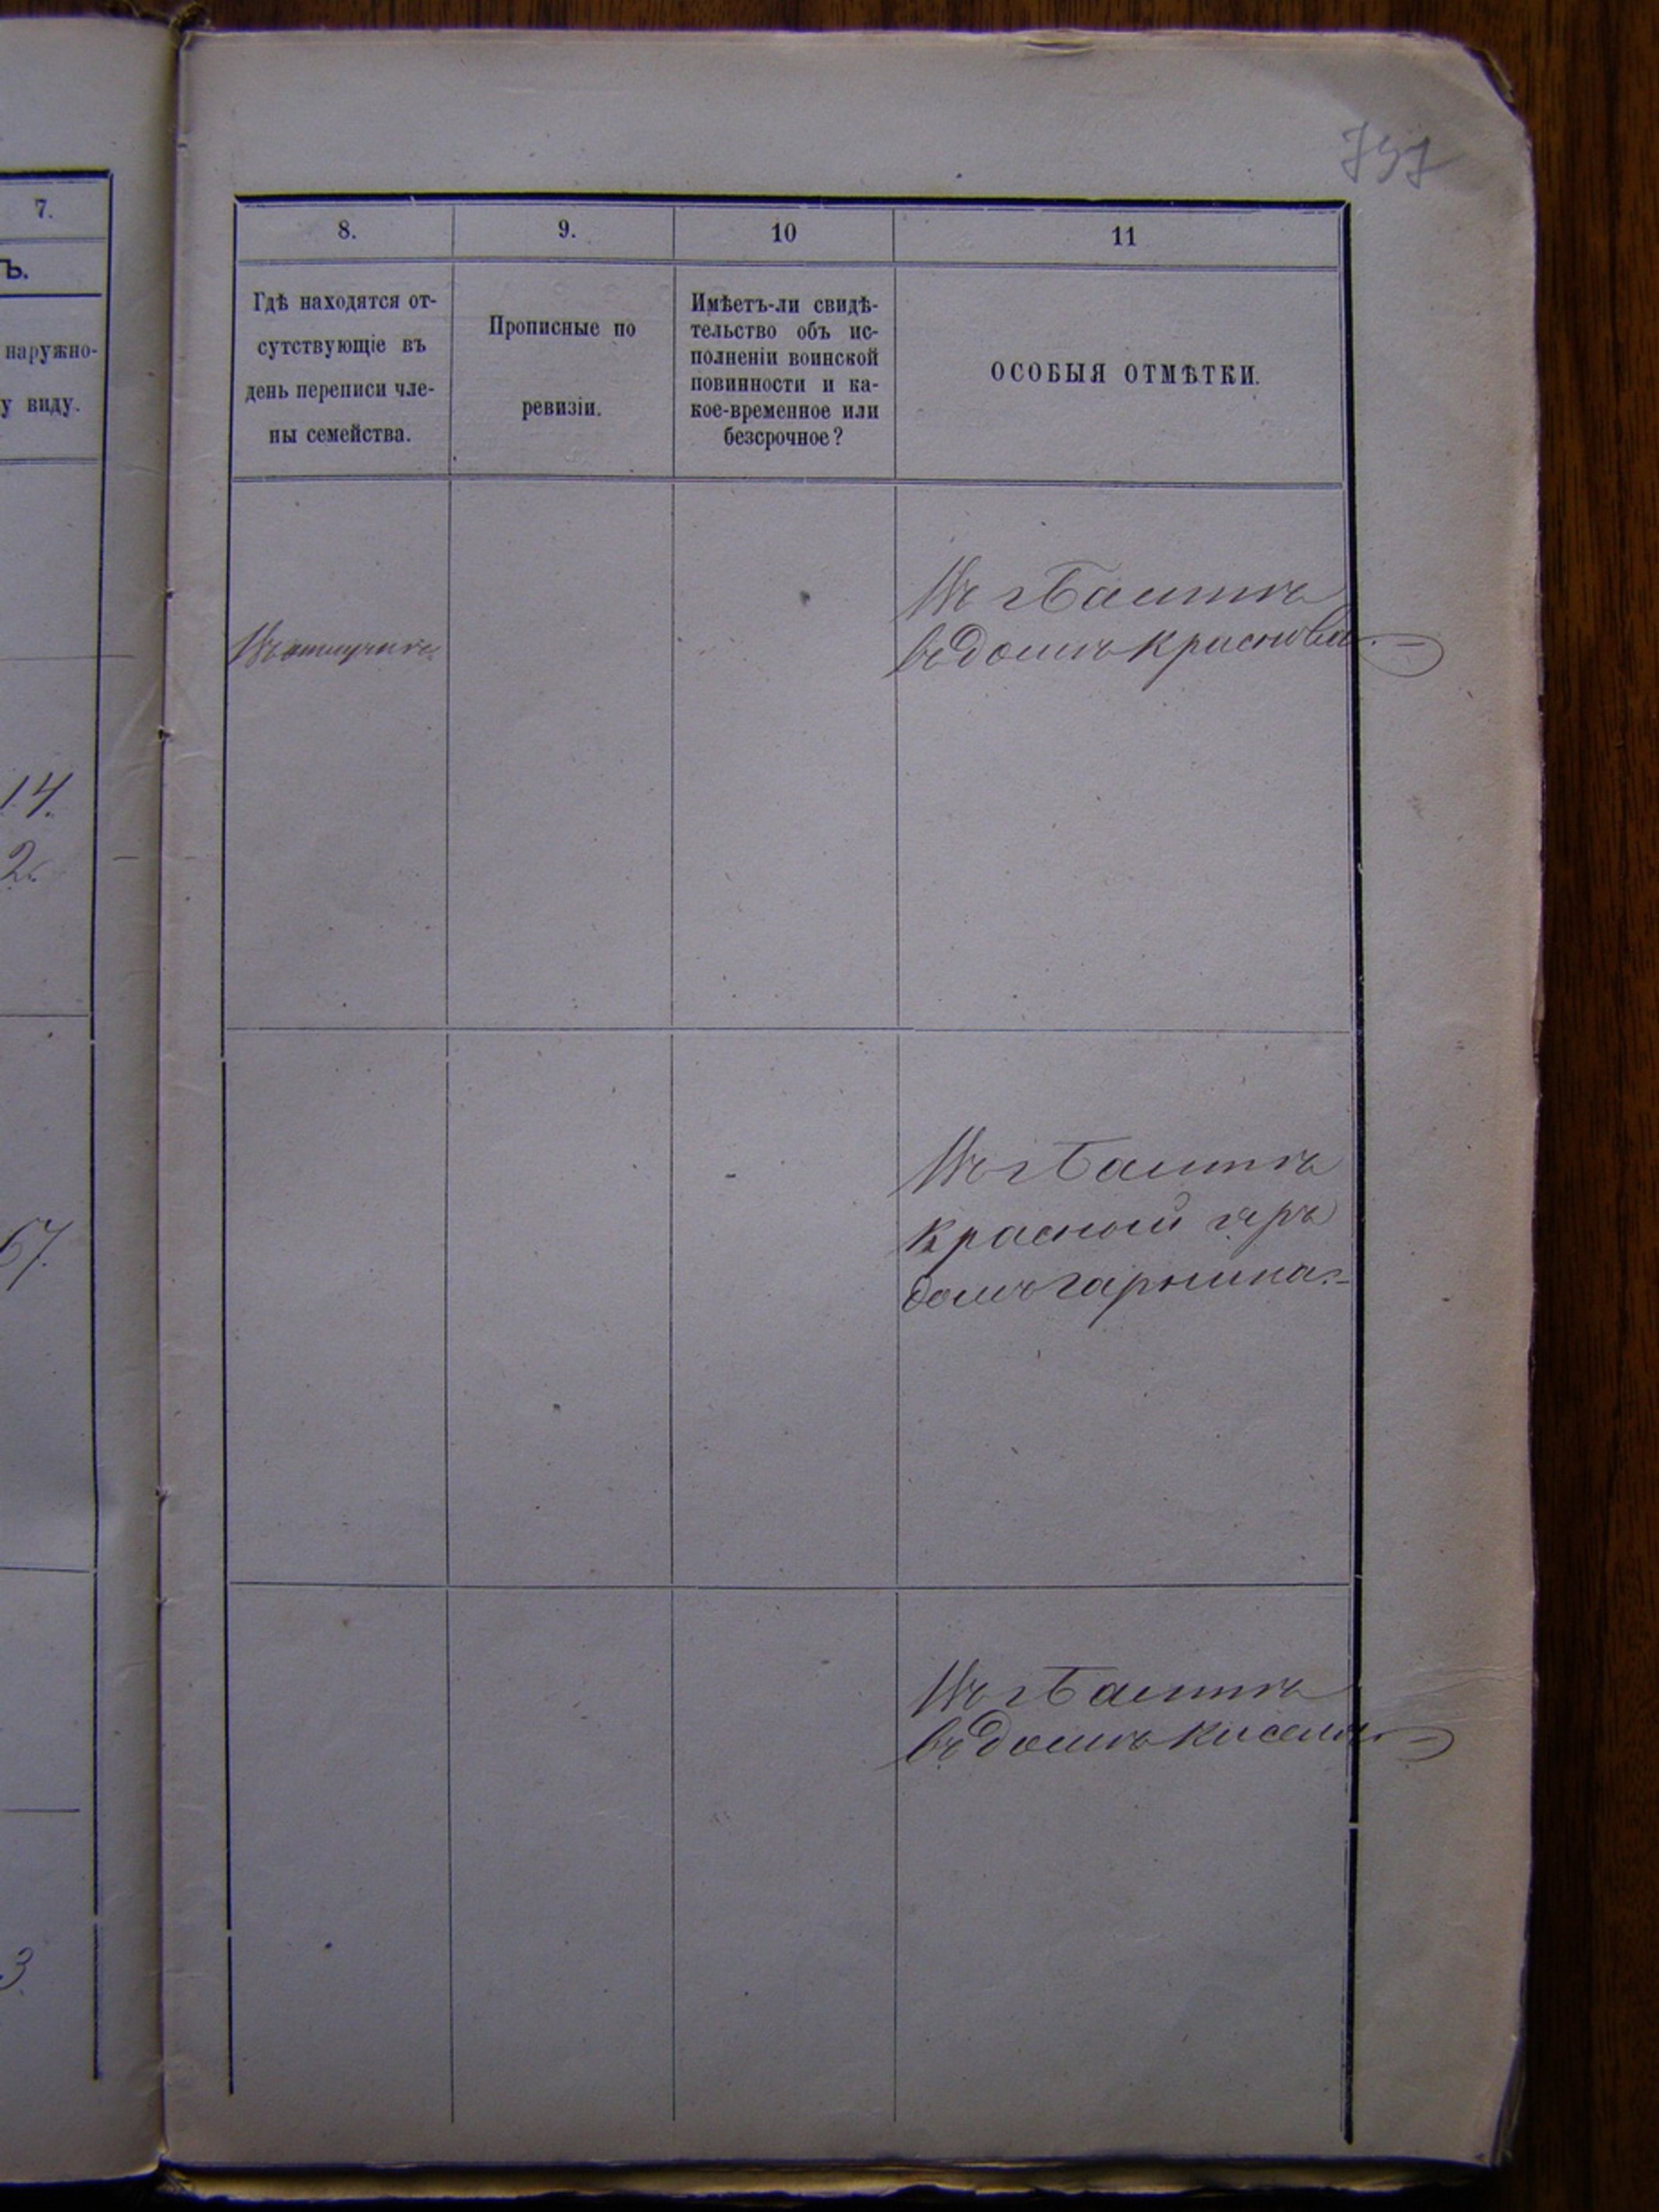 797
7.
Ъ.
наружно-
у виду.
14.
2.
57.
3
8.
9.
10
11
Гдѣ находятся от-
сутствующіе въ
день переписи чле-
ны семейства.
Прописные по
ревизіи.
Имѣетъ-ли свидѣ-
тельство объ ис-
полненіи воинской
повинности и ка-
кое-временное или
безсрочное?
ОСОБЫЯ ОТМѢТКИ.
Въ отлучкѣ
Въ г Балтѣ
въ домѣ Краснова
Въ г Балтѣ
Красный яръ
домъ
Въ г Балтѣ
въ домѣ